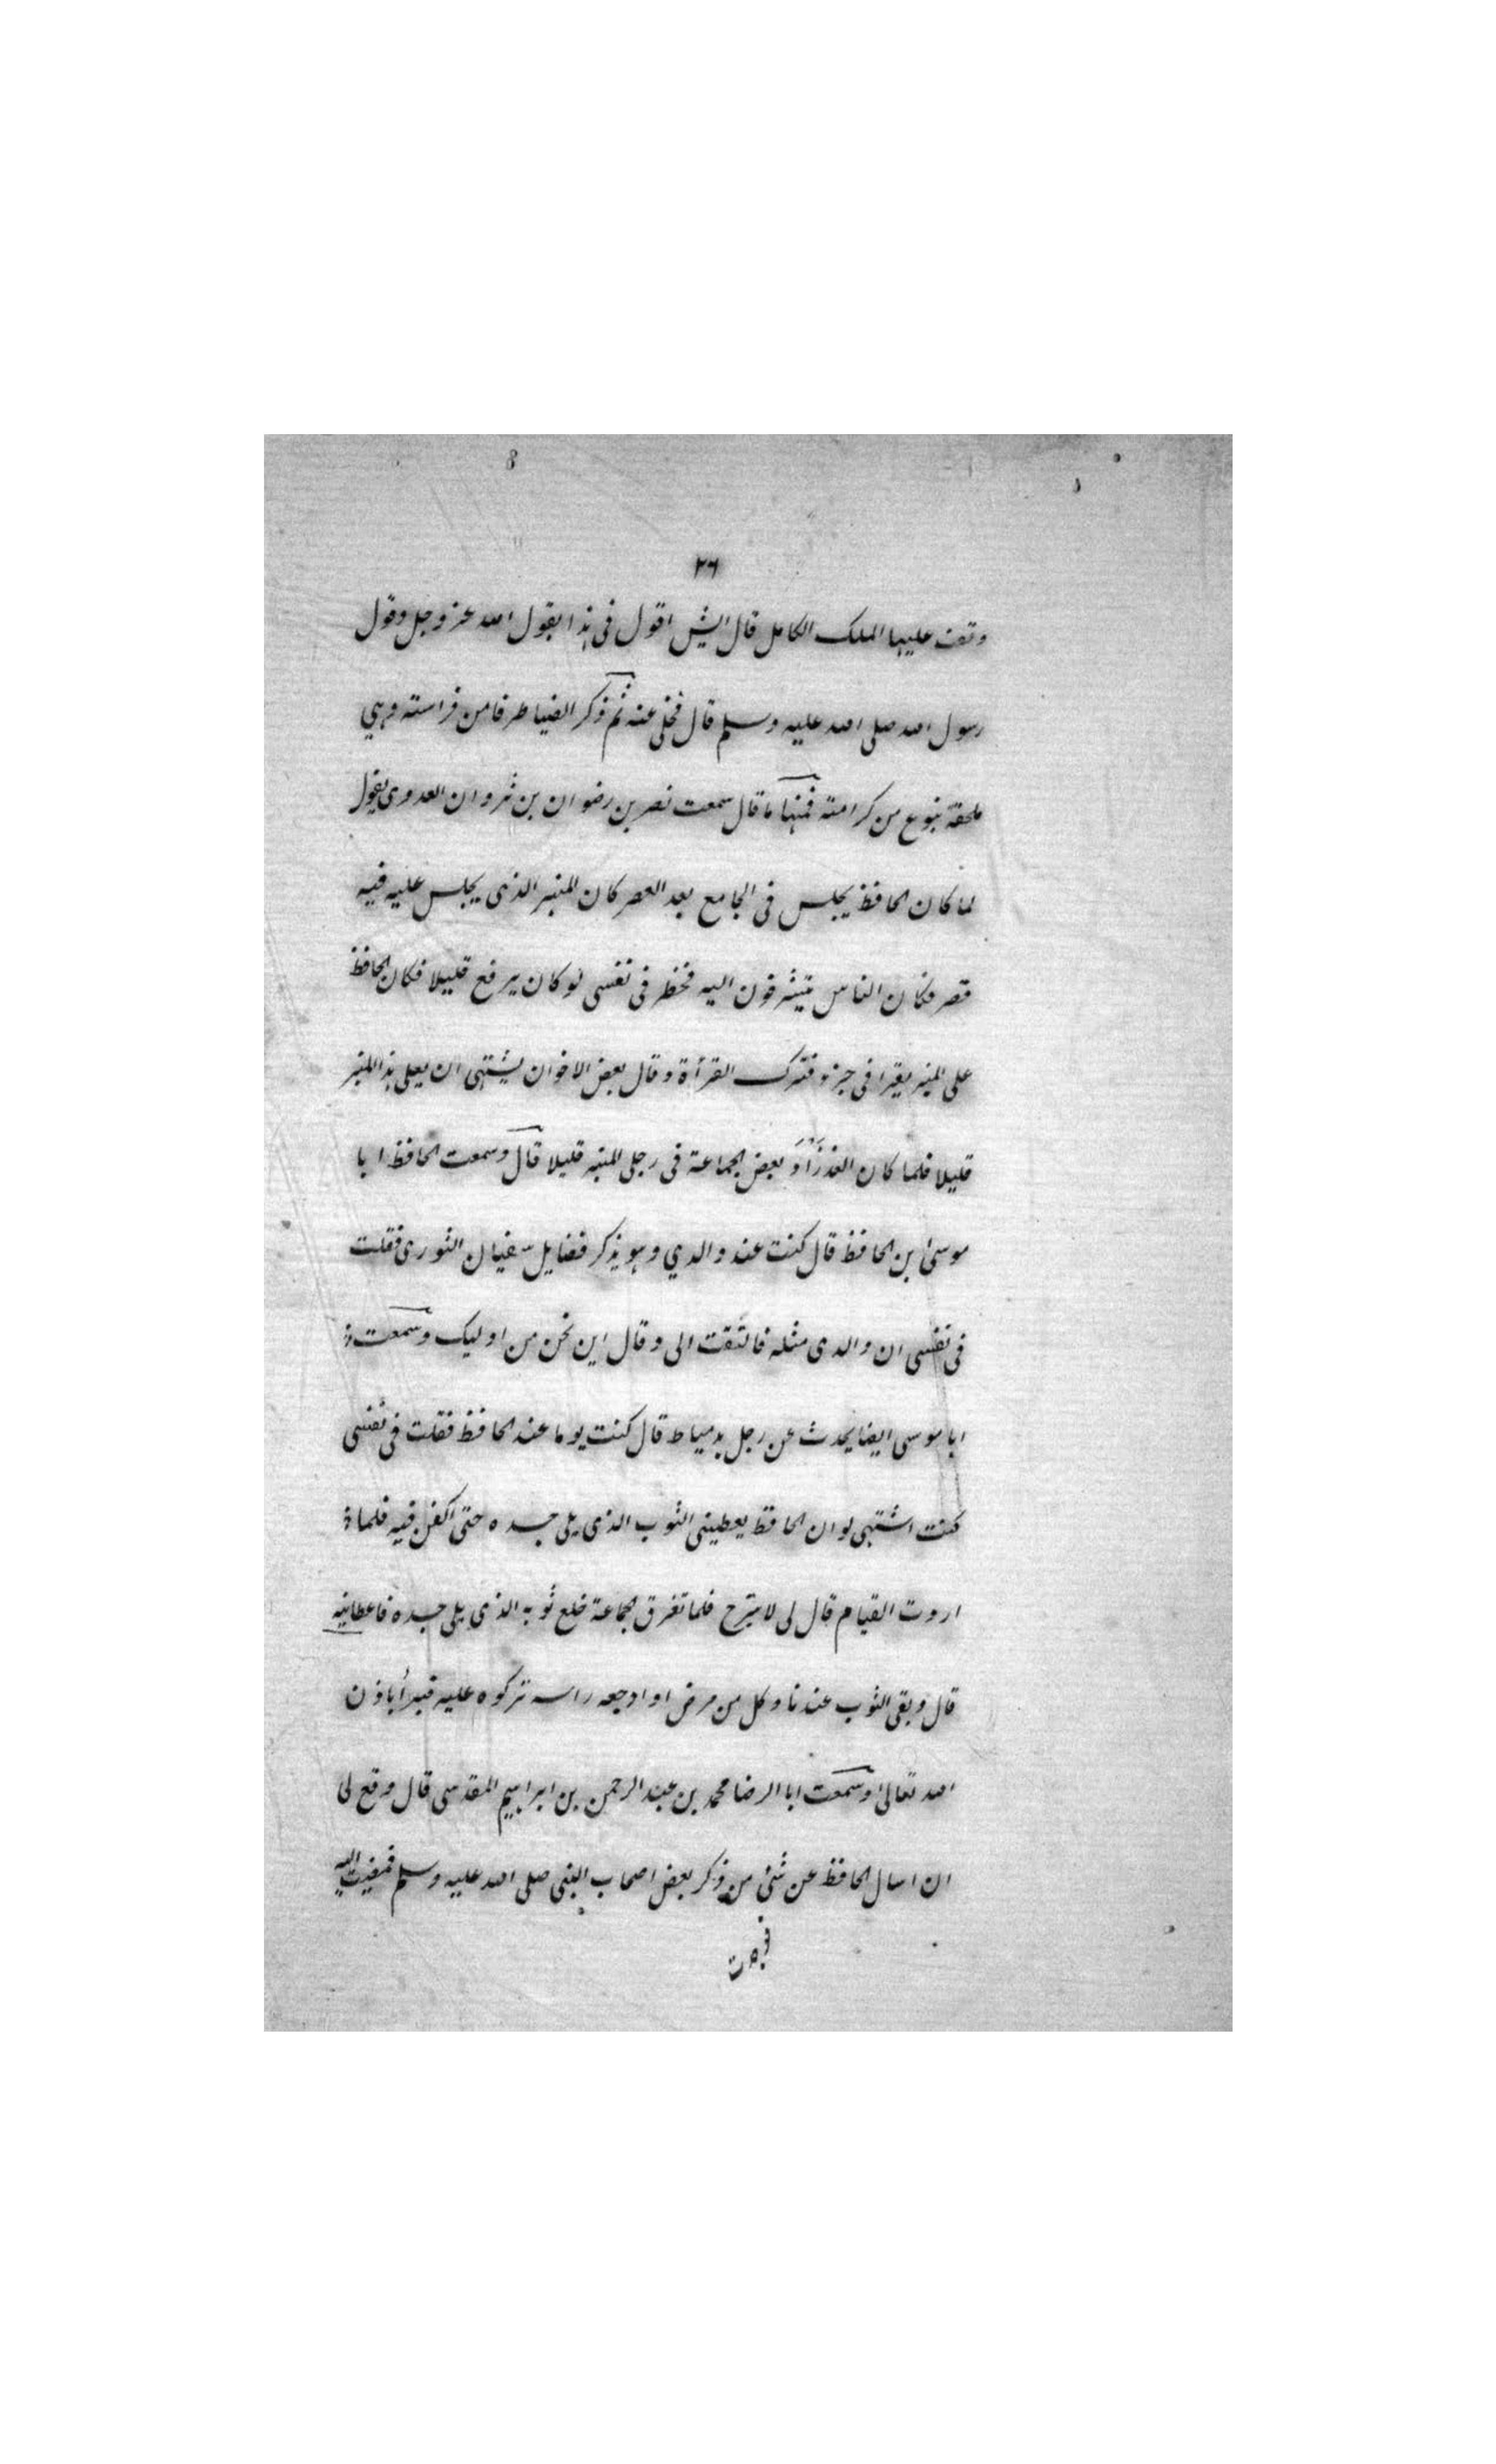 ٢٦
وقعت عليها الملك الكامل قال ايش اقول فى هذا بقول الله عز وجل وقول
رسول الله صلى الله عليه وسلم قال فخلى عنه ثم ذكر الضيا طرفا من فراسته وهي
ملحقة بنوع من كرامته فمنها ما قال سمعت نصر بن رضوان بن ثروان العدوى يقول
لما كان الحافظ يجلس فى الجامع بعد العصر كان المنبر الذى يجلس عليه فيه
قصر فكان الناس يتشرفون اليه فخطر فى نفسى لو كان يرفع قليلا فكان الحافظ
على المنبر يقرا فى جزو فترك القرأة وقال بعض الاخوان يشتهى ان يعلى هذا المنبر
قليلا فلما كان الغد زَادَ بعض الجماعة فى رجلى المنبر قليلا قال وسمعت الحافظ ابا
موسى بن الحافظ قال كنت عند والدي وهو يذكر فضايل سفيان الثورى فقلت
فى نفسى ان والدى مثله فالتفت الى وقال اين نحن من اوليك وسمعت
ابا موسى ايضا يحدث عن رجل بدمياط قال كنت يوما عند الحافظ فقلت فى نفسى
كنت اشتهى لو ان الحافظ يعطينى الثوب الذى يلى جسده حتى اكفن فيه فلما
اردت القيام قال لى لا تبرح فلما تفرق الجماعة خلع ثوبه الذى يلى جسده فاعطانيه
قال وبقى الثوب عندنا وكل من مرض او اوجعه راسه تركوه عليه فيبرأ باذن
الله تعالى وسمعت ابا الرضا محمد بن عبد الرحمن بن ابراهيم المقدسى قال وقع لى
ان اسال الحافظ عن شئ من ذكر بعض اصحاب النبى صلى الله عليه وسلم فمضيت اليه